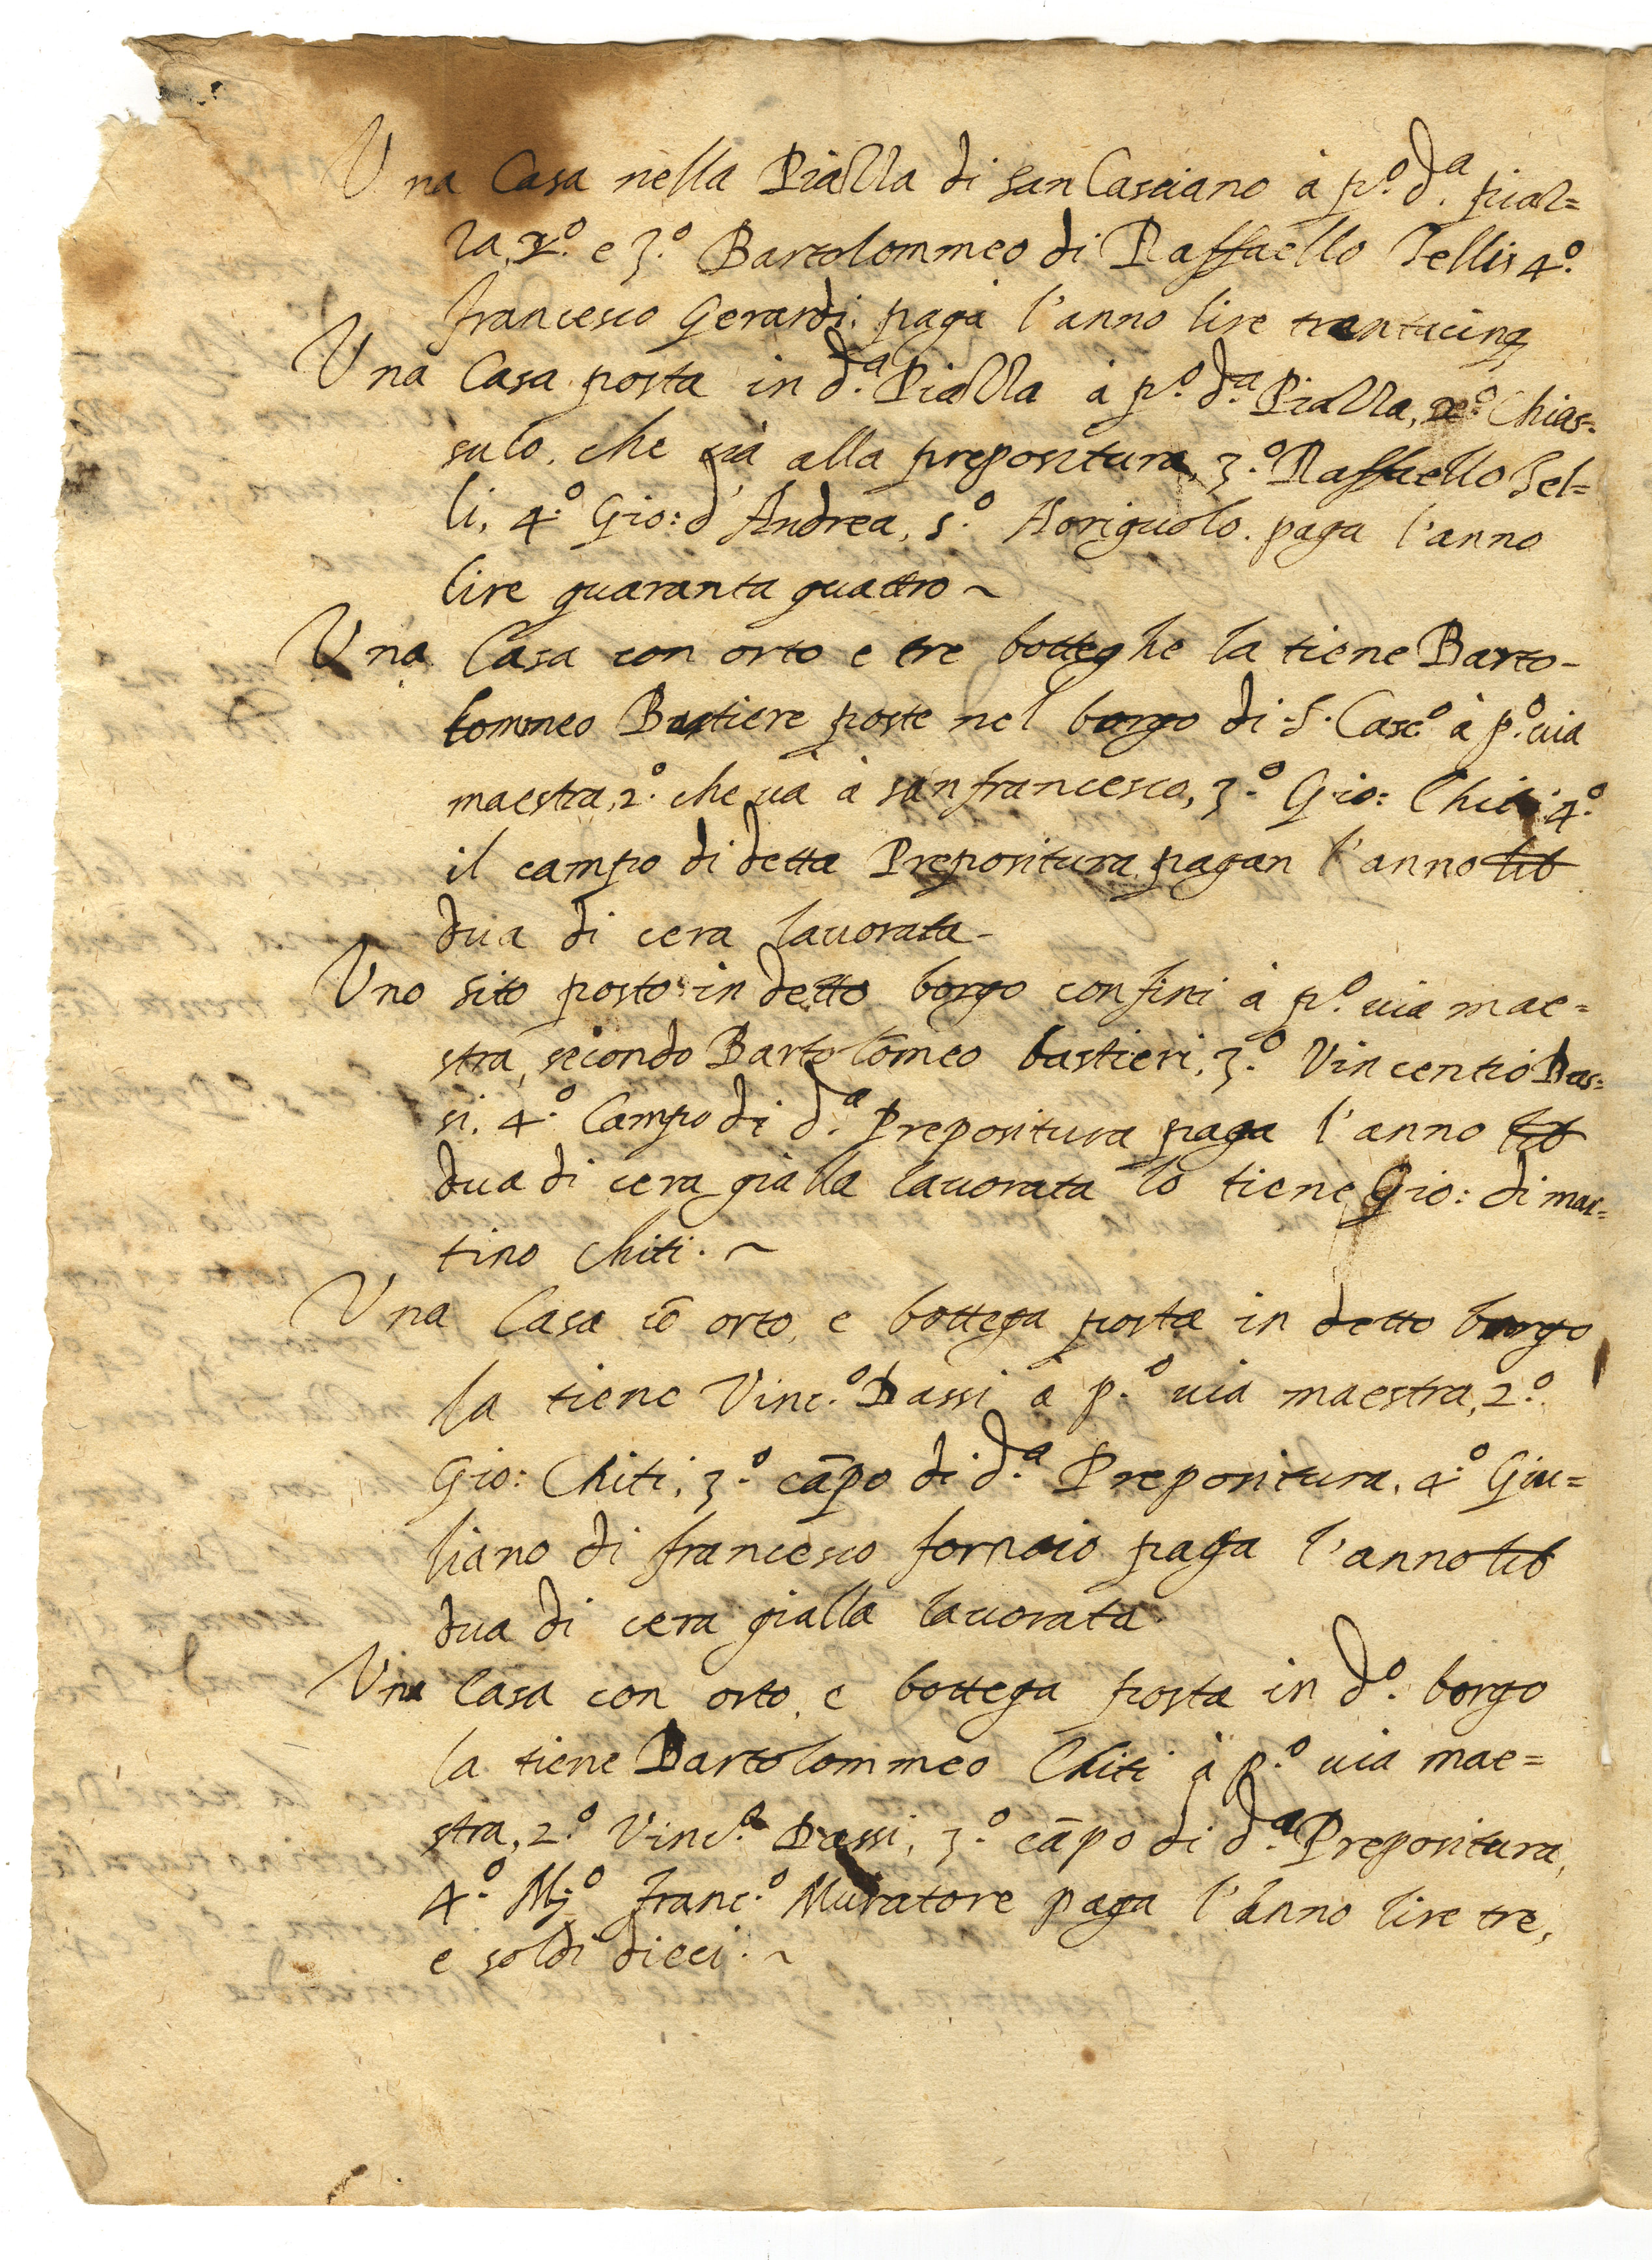 Una Casa nella Piazza di San Casciano à p.º d.ª piaz=
za, 2.º e 3.º Bartolommeo di Raffaello Telli, 4.º
francesco Gerardi. paga l'anno lire trentacinq
Una Casa posta in d.ª Piazza à p.º d.ª Piazza, 2.º Chias-
sulo, che uà alla prepositura, 3.º Raffaello Tel=
li, 4.º Gio: d'Andrea, 5.º paga l'anno
lire quaranta quattro ~
Una Casa con orto e tre botteghe la tiene Barto-
lommeo Bastiere poste nel borgo di S. Casc.º à p.º uia
maestra, 2.º che uà à san francesco, 3.º Gio: Chiti, 4.º
il campo di detta Prepositura pagan l'anno lib
dua di cera lauorata -
Uno sito posto in detto borgo confini à p.º uia mae=
stra, secondo Bartolõmeo bastieri, 3.º Vincentio Das=
si, 4.º Campo di d.ª Prepositura paga l'anno lib
dua di cera gialla lauorata lo tiene Gio: di mar=
tino Chiti. ~
Una Casa cõ orto, e bottega posta in detto borgo
la tiene Vinc.º Dassi à p.º uia maestra, 2.º
Gio: Chiti, 3.º cãpo di d.ª Prepositura, 4.º Giu=
liano di francesco fornaio paga l'anno lib
dua di cera gialla lauorata.
Una Casa con orto, e bottega posta in d.º borgo
la tiene Bartolommeo Chiti à p.º uia mae=
stra, 2.º Vinc.º Dassi, 3.º cãpo di d.ª Prepositura,
4.º M.º Franc.º Muratore paga l'anno lire tre,
e soldi dieci. ~